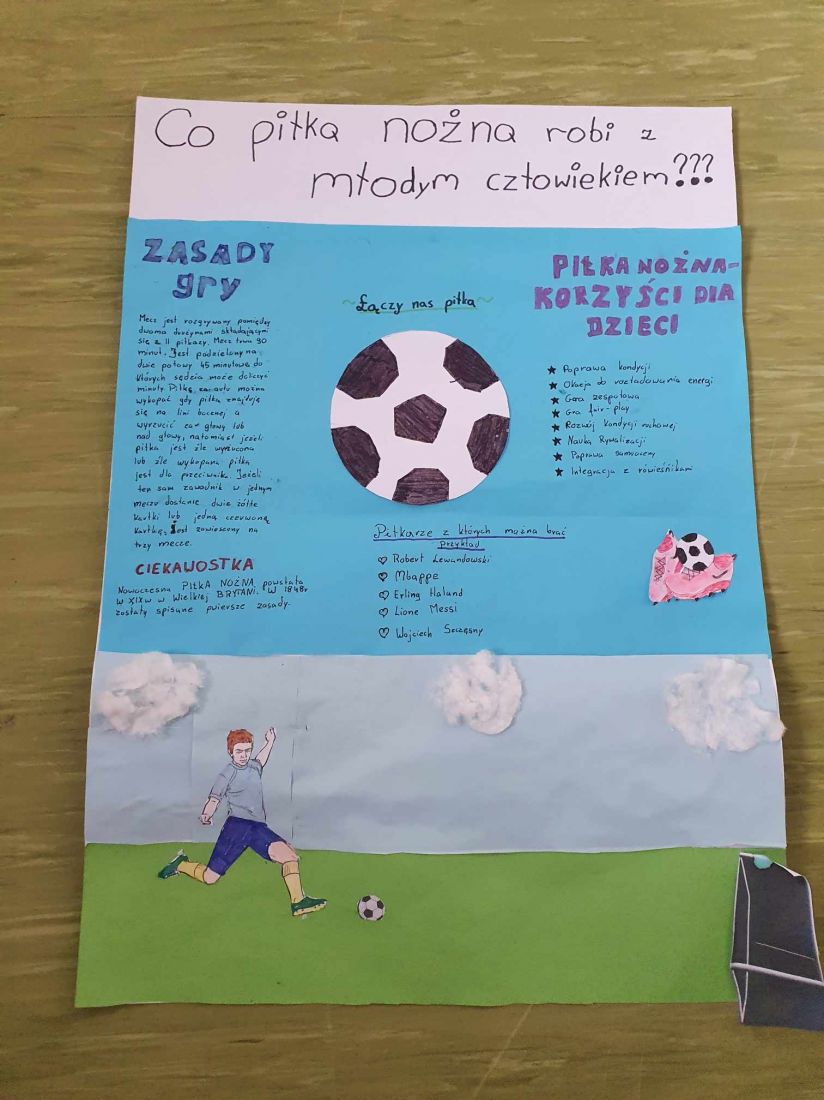 Co piłka nożna robi z
młodym człowiekiem???
ZASADY
gry
Mecz jest rozgrywany pomiędzy
dwoma drużynami składającymi
się z 11 piłkazy. Mecz trwa 90
minut. Jest podzielony na
dwie połowy 45 minutowe do
których sędzia może doliczyć
minuty Piłkę za autu można
wykopać gdy piłka znajduję
się na lini bocznej a
wyrzucić zza głowy lub
nad głowy, natomiast jeżeli
piłka jest źle wyrzucona
lub źle wykopana piłka
jest dla przeciwnika. Jeżeli
ten sam zawodnik w jednym
meczu dostanie dwie żółte
kartki lub jedną czerwoną
kartkę, Jest zawieszony na
trzy mecze.
CIEKAWOSTKA
Nowoczesna PIŁKA NOŻNA powstała
w XIXw w Wielkiej BRYTANI. W 1848r
zostały spisane pwiersze zasady.
~Łączy nas piłka~
Piłkarze z których można brać
przykład
Robert Lewandowski
Mbappe
Erling Haland
Lione Messi
Wojciech Szczęsny
PIŁKA NOŻNA-
KORZYŚCI DLA
DZIECI
Poprawa kondycji
Okacja do roztadowania energi
Gara zespołowa
Gra fair-play
Rozwój kondycji ruchowej
Nauka Rywalizacji
Poprawa
Integracja z rówieśnikami